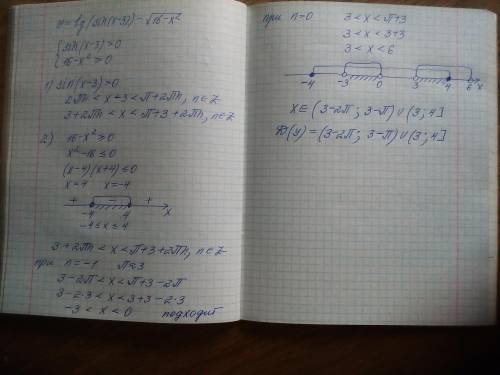 y = lg(sin(x-3)) - √16-x²
{ sin(x-3)>0
{ 16-x²≥0
1) sin(x-3)>0
2πn < x-3 < π+2πn, n∈Z
3+2πn < x < π+3+2πn, n∈Z
2) 16-x²≥0
x²-16≤0
(x-4)(x+4)≤0
x=4 x=-4
+ - +
-4 4 x
-4≤x≤4
3+2πn < x < π+3+2πn, n∈Z
при n=-1 π≈3
3-2π < x < π+3-2π
3-2·3 < x < 3+3-2·3
-3 < x < 0 подходит
при n=0 3 < x < π+3
3 < x < 3+3
3 < x < 6
-4 -3 0 3 4 6 x
x∈(3-2π; 3-π)∪(3; 4]
D(y) = (3-2π; 3-π)∪(3; 4]